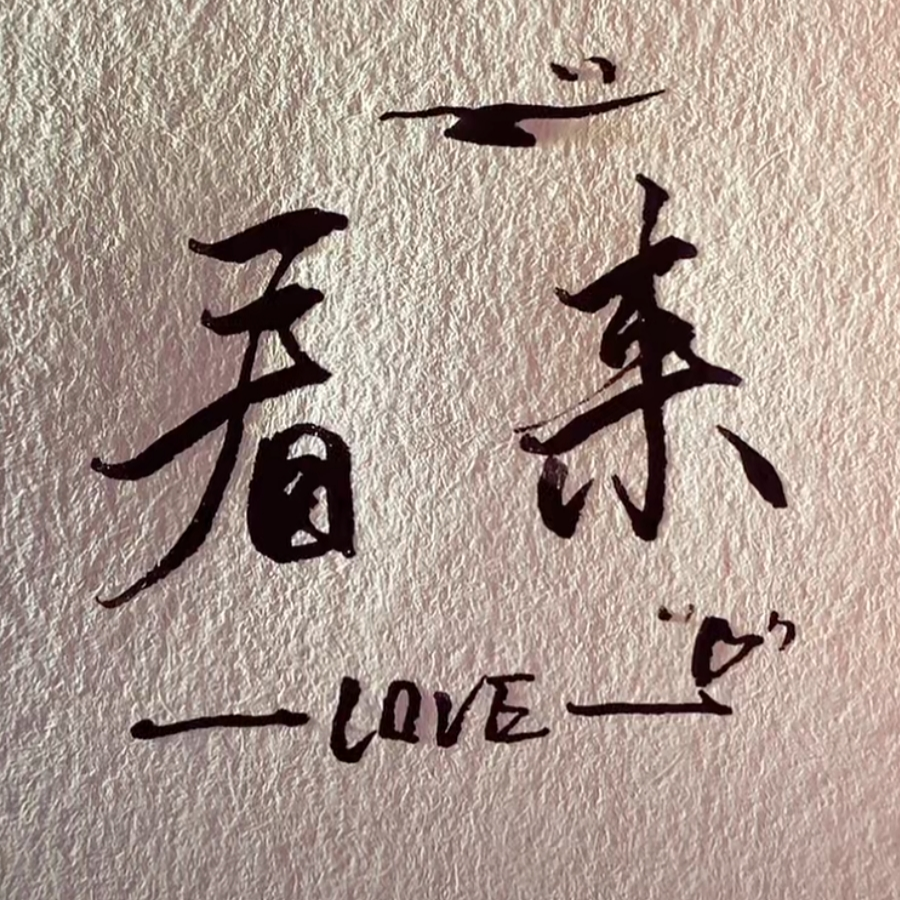 看来
LOVE